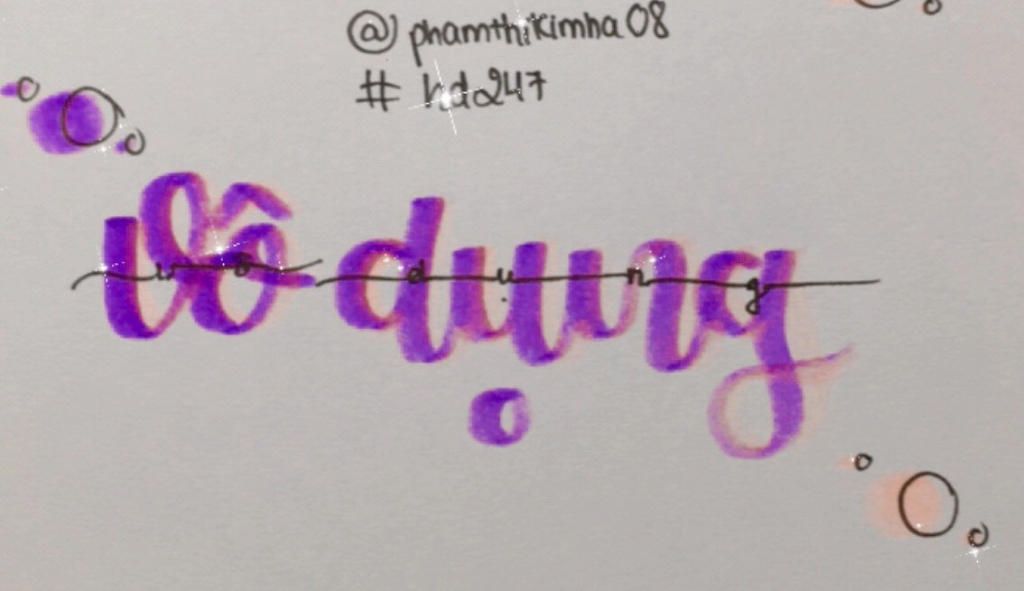 @phamthikimha08
# hd247
vô dụng
vô dụng